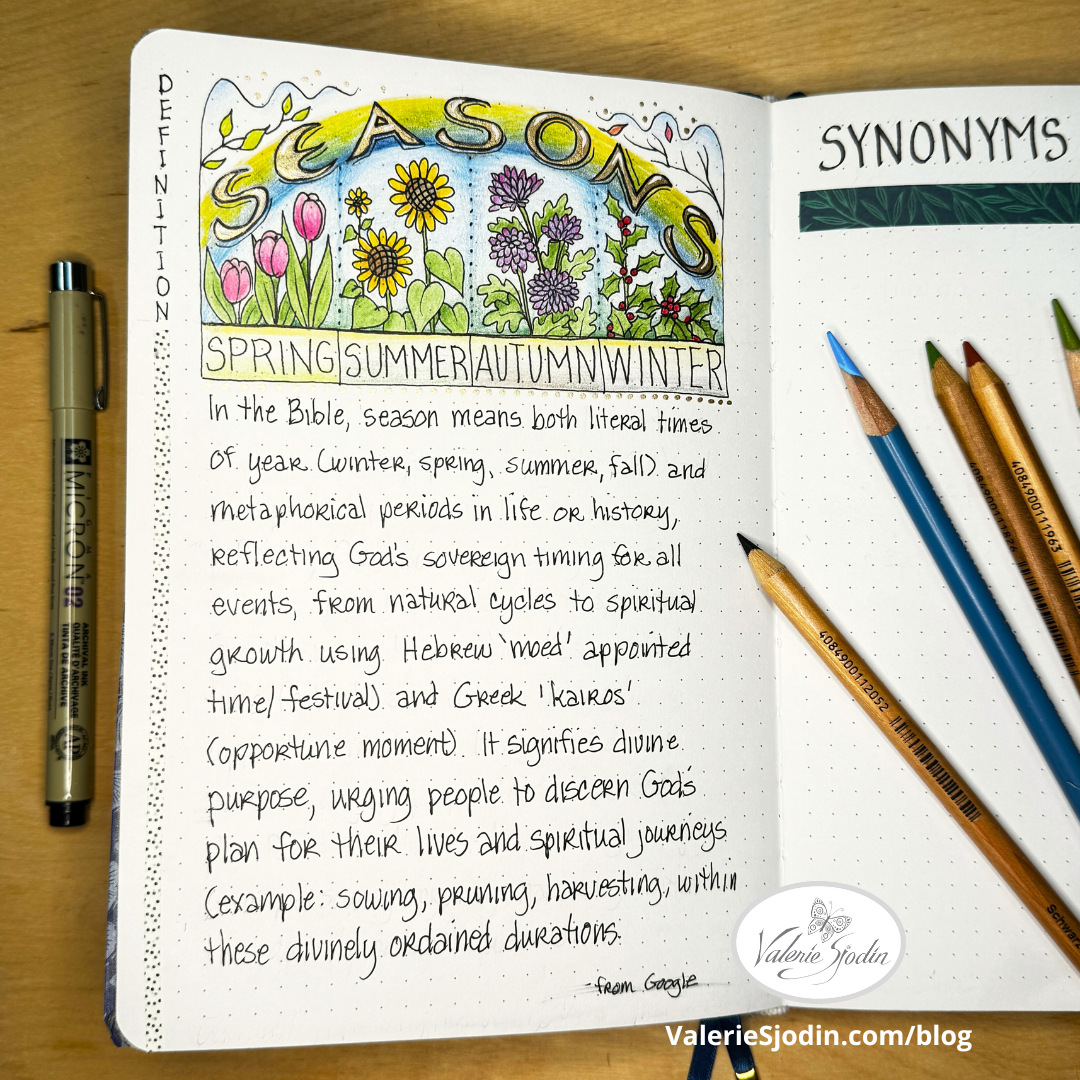 DEFINITION
SEASONS
SPRING SUMMER AUTUMN WINTER
In the Bible, season means both literal times
of year (winter, spring, summer, fall) and
metaphorical periods in life or history,
reflecting God's sovereign timing for all
events, from natural cycles to spiritual
growth using Hebrew 'moed' appointed
time/festival) and Greek 'kairos'
(opportune moment). It signifies divine
purpose, urging people to discern God's
plan for their lives and spiritual journeys
(example: sowing, pruning, harvesting, within
these divinely ordained durations.
-from Google
SYNONYMS
MICRON 02
ARCHIVAL INK
QUALITÉ D'ARCHIVAGE
TINTA DE ARCHIVE
4084900111963
4084900112052
Schwarz
Valerie Sjodin
ValerieSjodin.com/blog